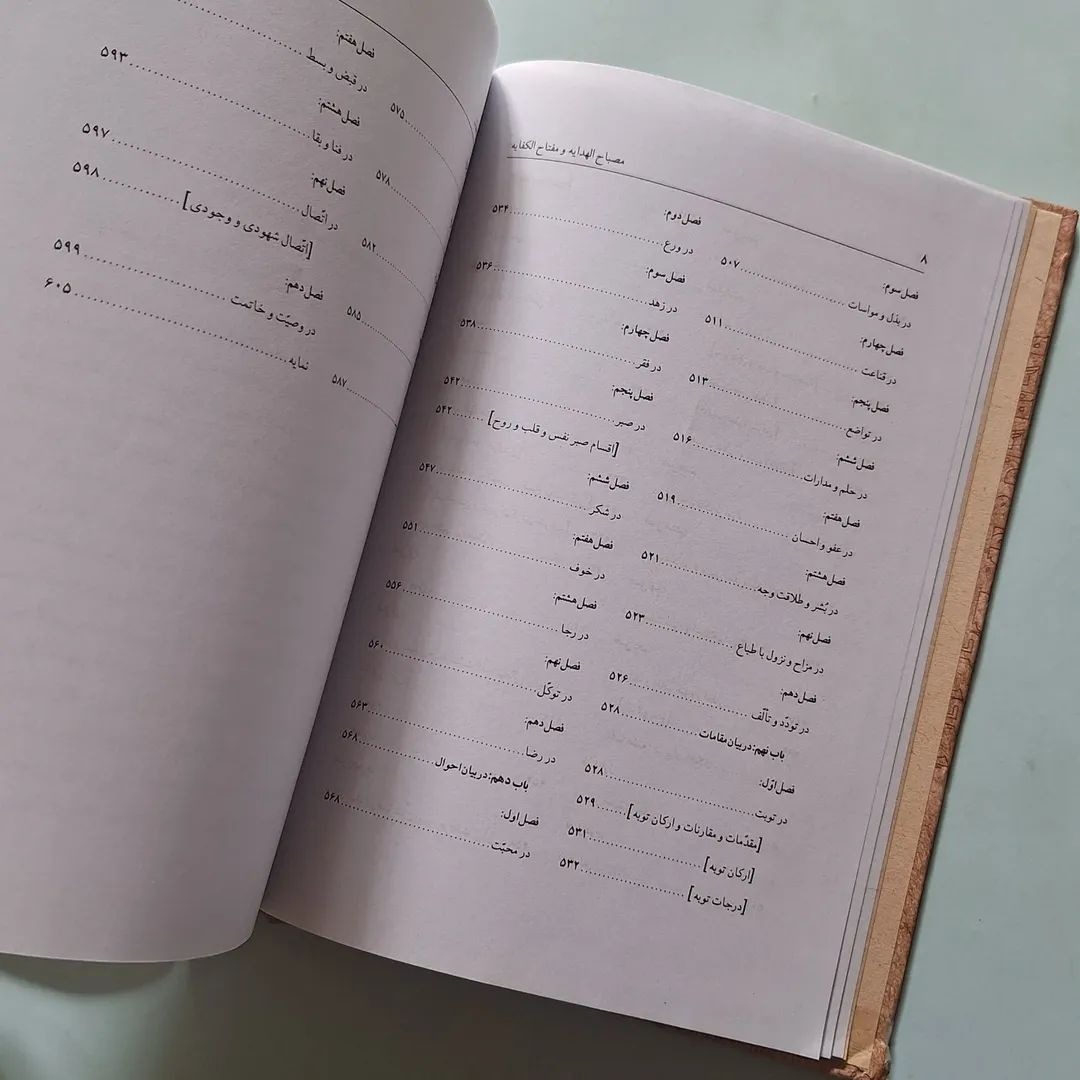 ۸
مصباح الهدایه و مفتاح الکفایه
فصل سوم:
در بذل و مواسات ........ ۵۰۷
فصل چهارم:
در قناعت ........ ۵۱۱
فصل پنجم:
در تواضع ........ ۵۱۳
فصل ششم:
در حلم و مدارات ........ ۵۱۶
فصل هفتم:
در عفو و احسان ........ ۵۱۹
فصل هشتم:
در بُشر و طلاقت وجه ........ ۵۲۱
فصل نهم:
در مزاح و نزول با طباع ........ ۵۲۳
فصل دهم:
در تودّد و تألّف ........ ۵۲۶
باب نهم: در بیان مقامات ........ ۵۲۸
فصل اوّل:
در توبت ........ ۵۲۸
[مقدّمات و مقارنات و ارکان توبه] ........ ۵۲۹
[ارکان توبه] ........ ۵۳۱
[درجات توبه] ........ ۵۳۲
فصل دوم:
در ورع ........ ۵۳۴
فصل سوم:
در زهد ........ ۵۳۶
فصل چهارم:
در فقر ........ ۵۳۸
فصل پنجم:
در صبر ........ ۵۴۲
[اقسام صبر نفس و قلب و روح] ........ ۵۴۲
فصل ششم:
در شکر ........ ۵۴۷
فصل هفتم:
در خوف ........ ۵۵۱
فصل هشتم:
در رجا ........ ۵۵۶
فصل نهم:
در توکّل ........ ۵۶۰
فصل دهم:
در رضا ........ ۵۶۳
باب دهم: در بیان احوال ........ ۵۶۸
فصل اول:
در محبّت ........ ۵۶۸
۵۷۵
۵۷۸
۵۸۲
۵۸۵
۵۸۷
فصل هفتم:
در قبض و بسط ........ ۵۹۳
فصل هشتم:
در فنا و بقا ........ ۵۹۷
فصل نهم:
در اتّصال ........ ۵۹۸
[اتّصال شهودی و وجودی] ........ ۵۹۹
فصل دهم:
در وصیّت و خاتمت ........ ۶۰۵
نمایه ........